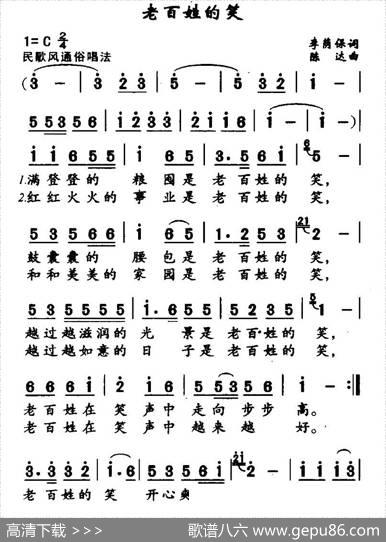 老百姓的笑
1=C 2/4
李荫保词
民歌风通俗唱法
陈达曲
(3 - | 3 2 3 | 5 - | 5 3 2 |
5 5 3 5 6 | 1 6 1 2 | 1 - | 1 -) |
1 1 6 5 5 | 1 6 5 | 3. 5 6 1 | 5 - |
1.满登登的 粮囤是 老百姓的 笑,
2.红红火火的 事业是 老百姓的 笑,
5 3 5 6 6 | 1 6 5 | 1. 2 5 3 | 2 - |
鼓囊囊的 腰包是 老百姓的 笑,
和和美美的 家园是 老百姓的 笑,
5 3 5 5 5 5 | 1. 6 5 5 | 5 2 3 5 | 5 - |
越过越滋润的 光 景是 老百姓的 笑,
越过越如意的 日 子是 老百姓的 笑,
6 6 6 1 | 2 1 6 | 5 5 3 5 | 6 - :|
老百姓在 笑声中 走向步步 高。
老百姓在 笑声中 越来越 好。
3. 3 3 2 | 1. 6 | 3 2 | 2 - | 1 1 1 3 |
老百姓的 笑 开心爽
高清下载 >>>
歌谱八六 www.gepu86.com